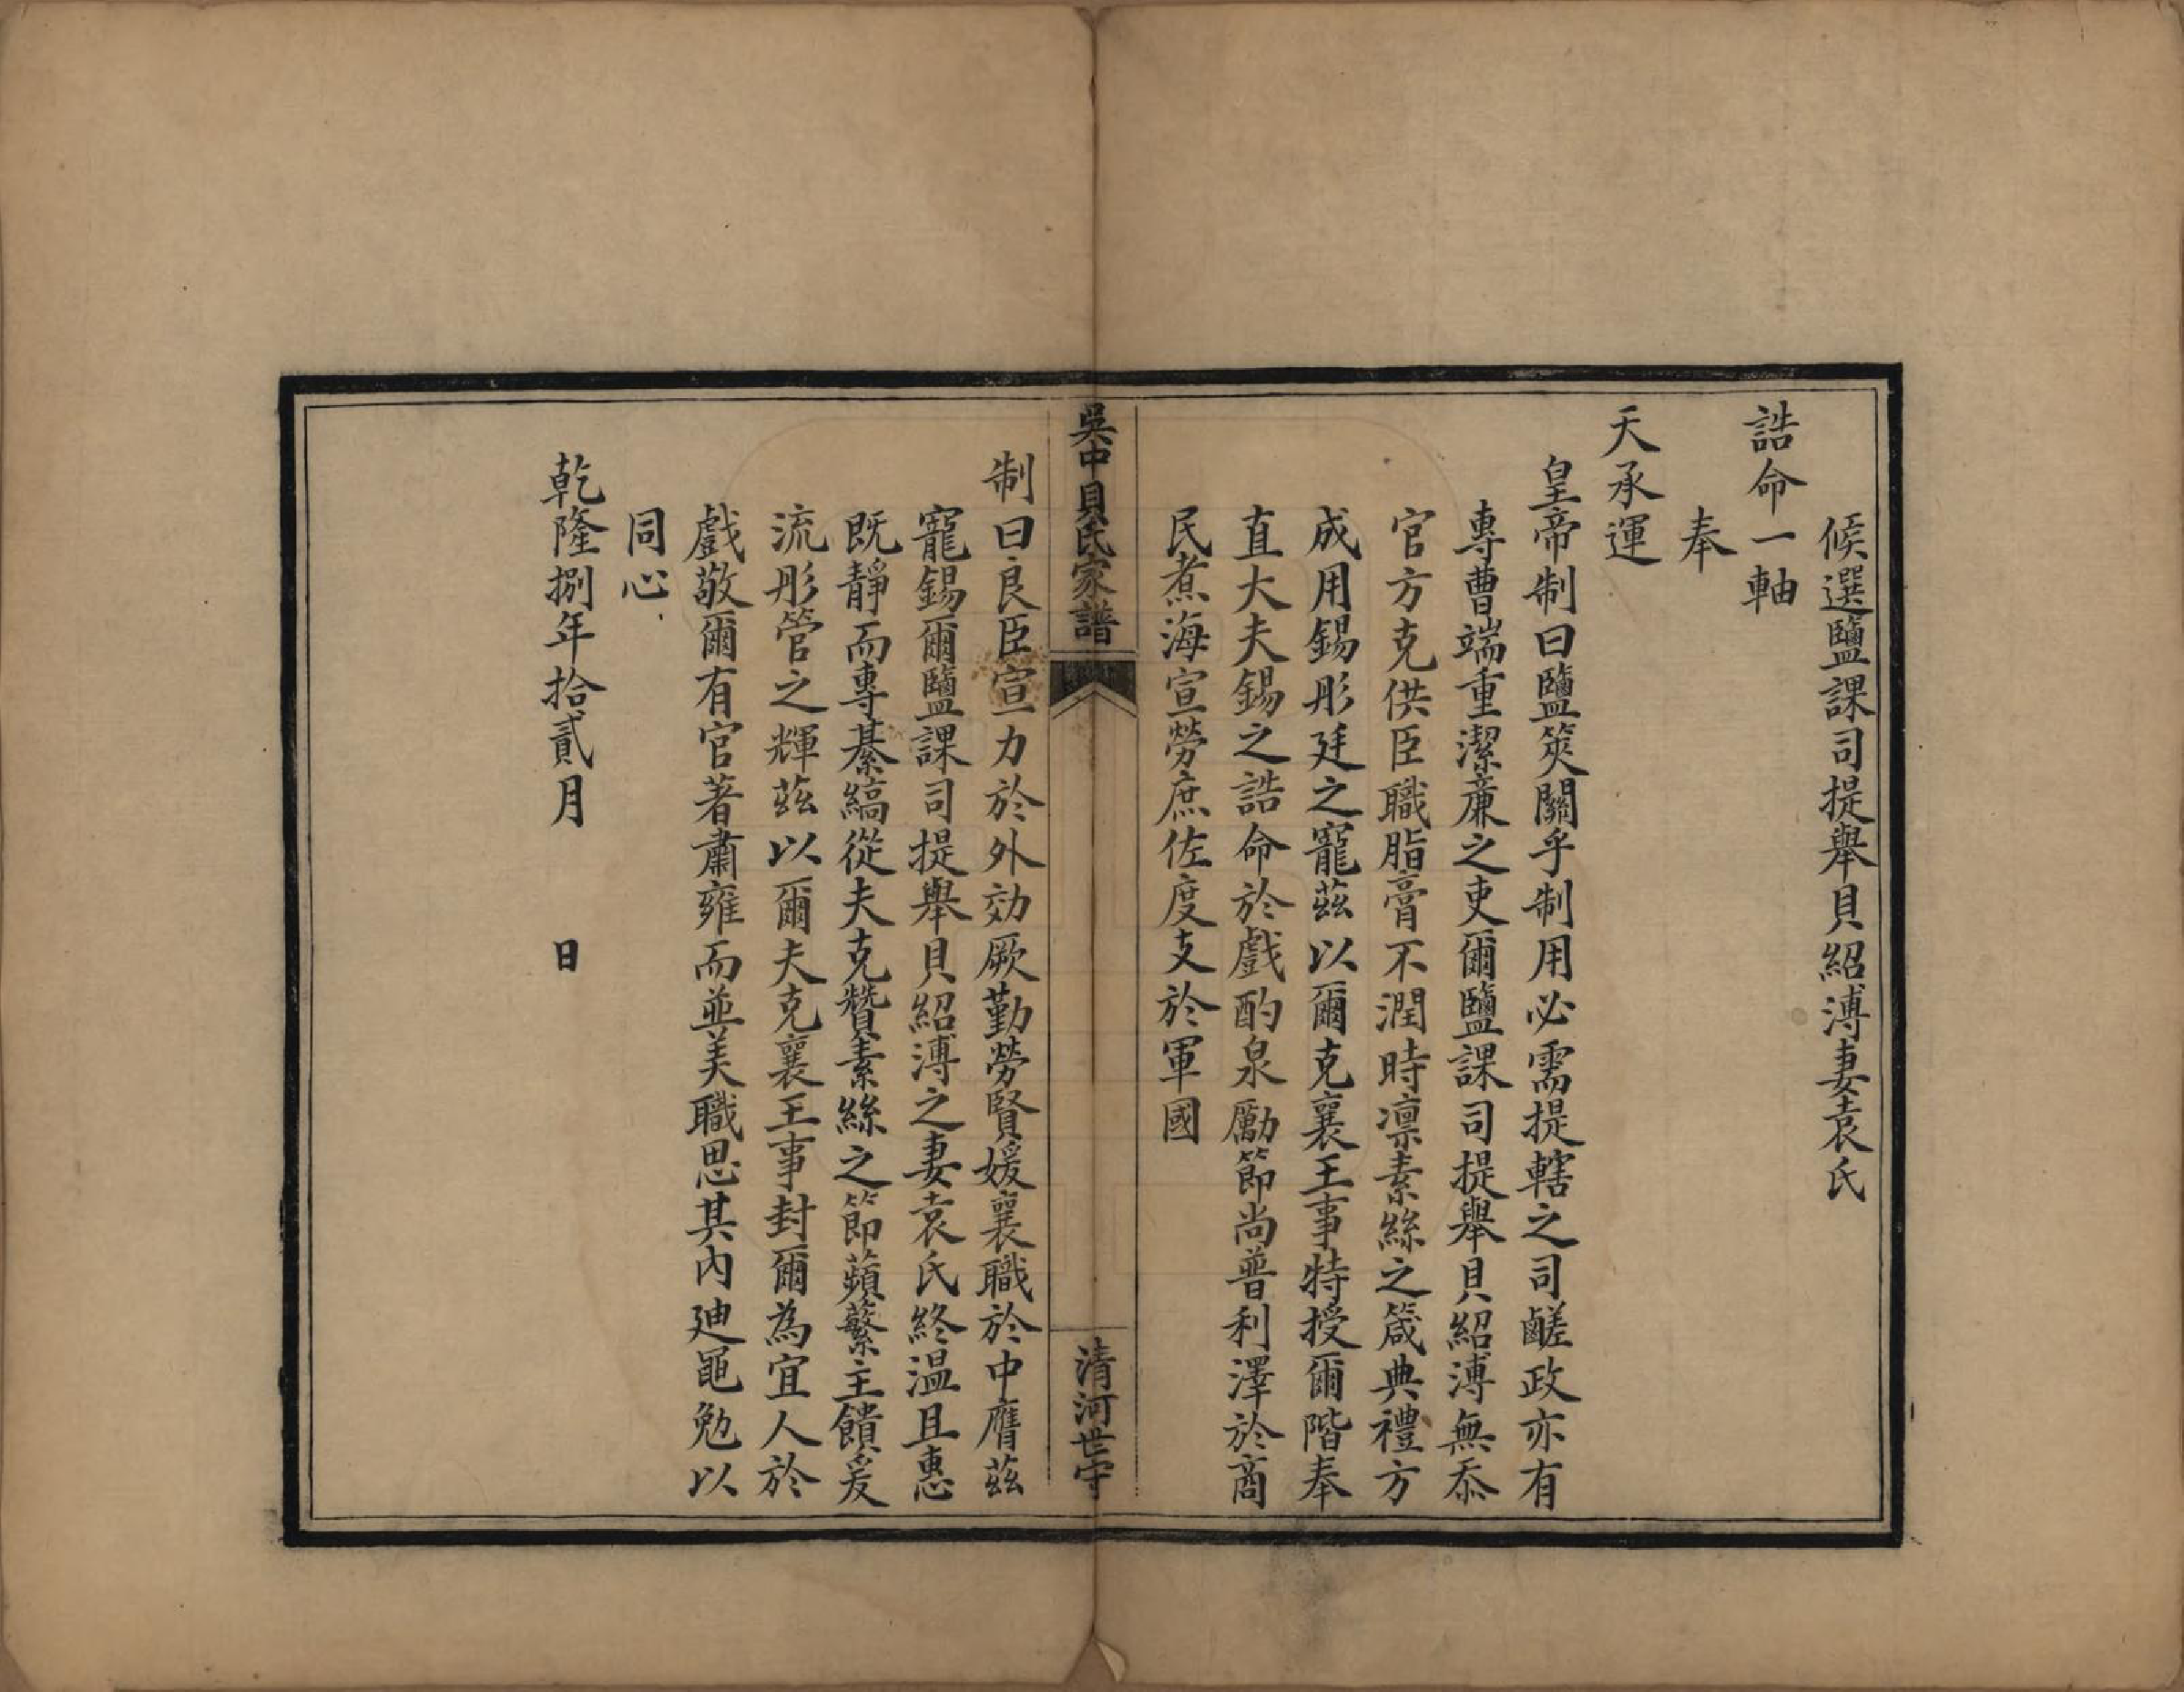 候選鹽課司提舉貝紹溥妻袁氏
誥命一軸
奉
天承運
皇帝制曰鹽筴關乎制用必需提轄之司鹺政亦有
專曹端重潔亷之吏爾鹽課司提舉貝紹溥無忝
官方克供臣職脂膏不潤時凛素絲之箴典禮方
成用錫彤廷之寵茲以爾克襄王事特授爾階奉
直大夫錫之誥命於戲酌泉勵節尚普利澤於商
民煮海宣勞庶佐度支於軍國
吳中貝氏家譜
清河世守
制曰良臣宣力於外効厥勤勞賢媛襄職於中膺茲
寵錫爾鹽課司提舉貝紹溥之妻袁氏終温且惠
既靜而專綦縞從夫克贊素絲之節蘋蘩主饋爰
流彤管之輝茲以爾夫克襄王事封爾為宜人於
戲敬爾有官著肅雍而並美職思其內廸黽勉以
同心
乾隆捌年拾貳月　　日